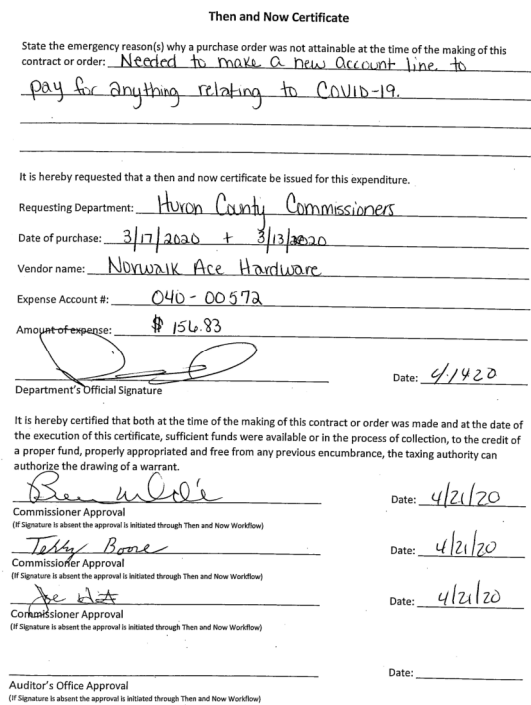 Then and Now Certificate
State the emergency reason(s) why a purchase order was not attainable at the time of the making of this
contract or order: Needed to make a new account line to
pay for anything relating to COVID-19.
It is hereby requested that a then and now certificate be issued for this expenditure.
Requesting Department: Huron County Commissioners
Date of purchase: 3/17/2020 + 3/13/2020
Vendor name: Norwalk Ace Hardware
Expense Account #: 040-00572
Amount of expense: $ 156.83
Date: 4/1420
Department's Official Signature
It is hereby certified that both at the time of the making of this contract or order was made and at the date of
the execution of this certificate, sufficient funds were available or in the process of collection, to the credit of
a proper fund, properly appropriated and free from any previous encumbrance, the taxing authority can
authorize the drawing of a warrant.
Date: 4/21/20
Commissioner Approval
(If Signature is absent the approval is initiated through Then and Now Workflow)
Terry Boose Date: 4/21/20
Commissioner Approval
(If Signature is absent the approval is initiated through Then and Now Workflow)
Joe Date: 4/21/20
Commissioner Approval
(If Signature is absent the approval is initiated through Then and Now Workflow)
Date:
Auditor's Office Approval
(If Signature is absent the approval is initiated through Then and Now Workflow)